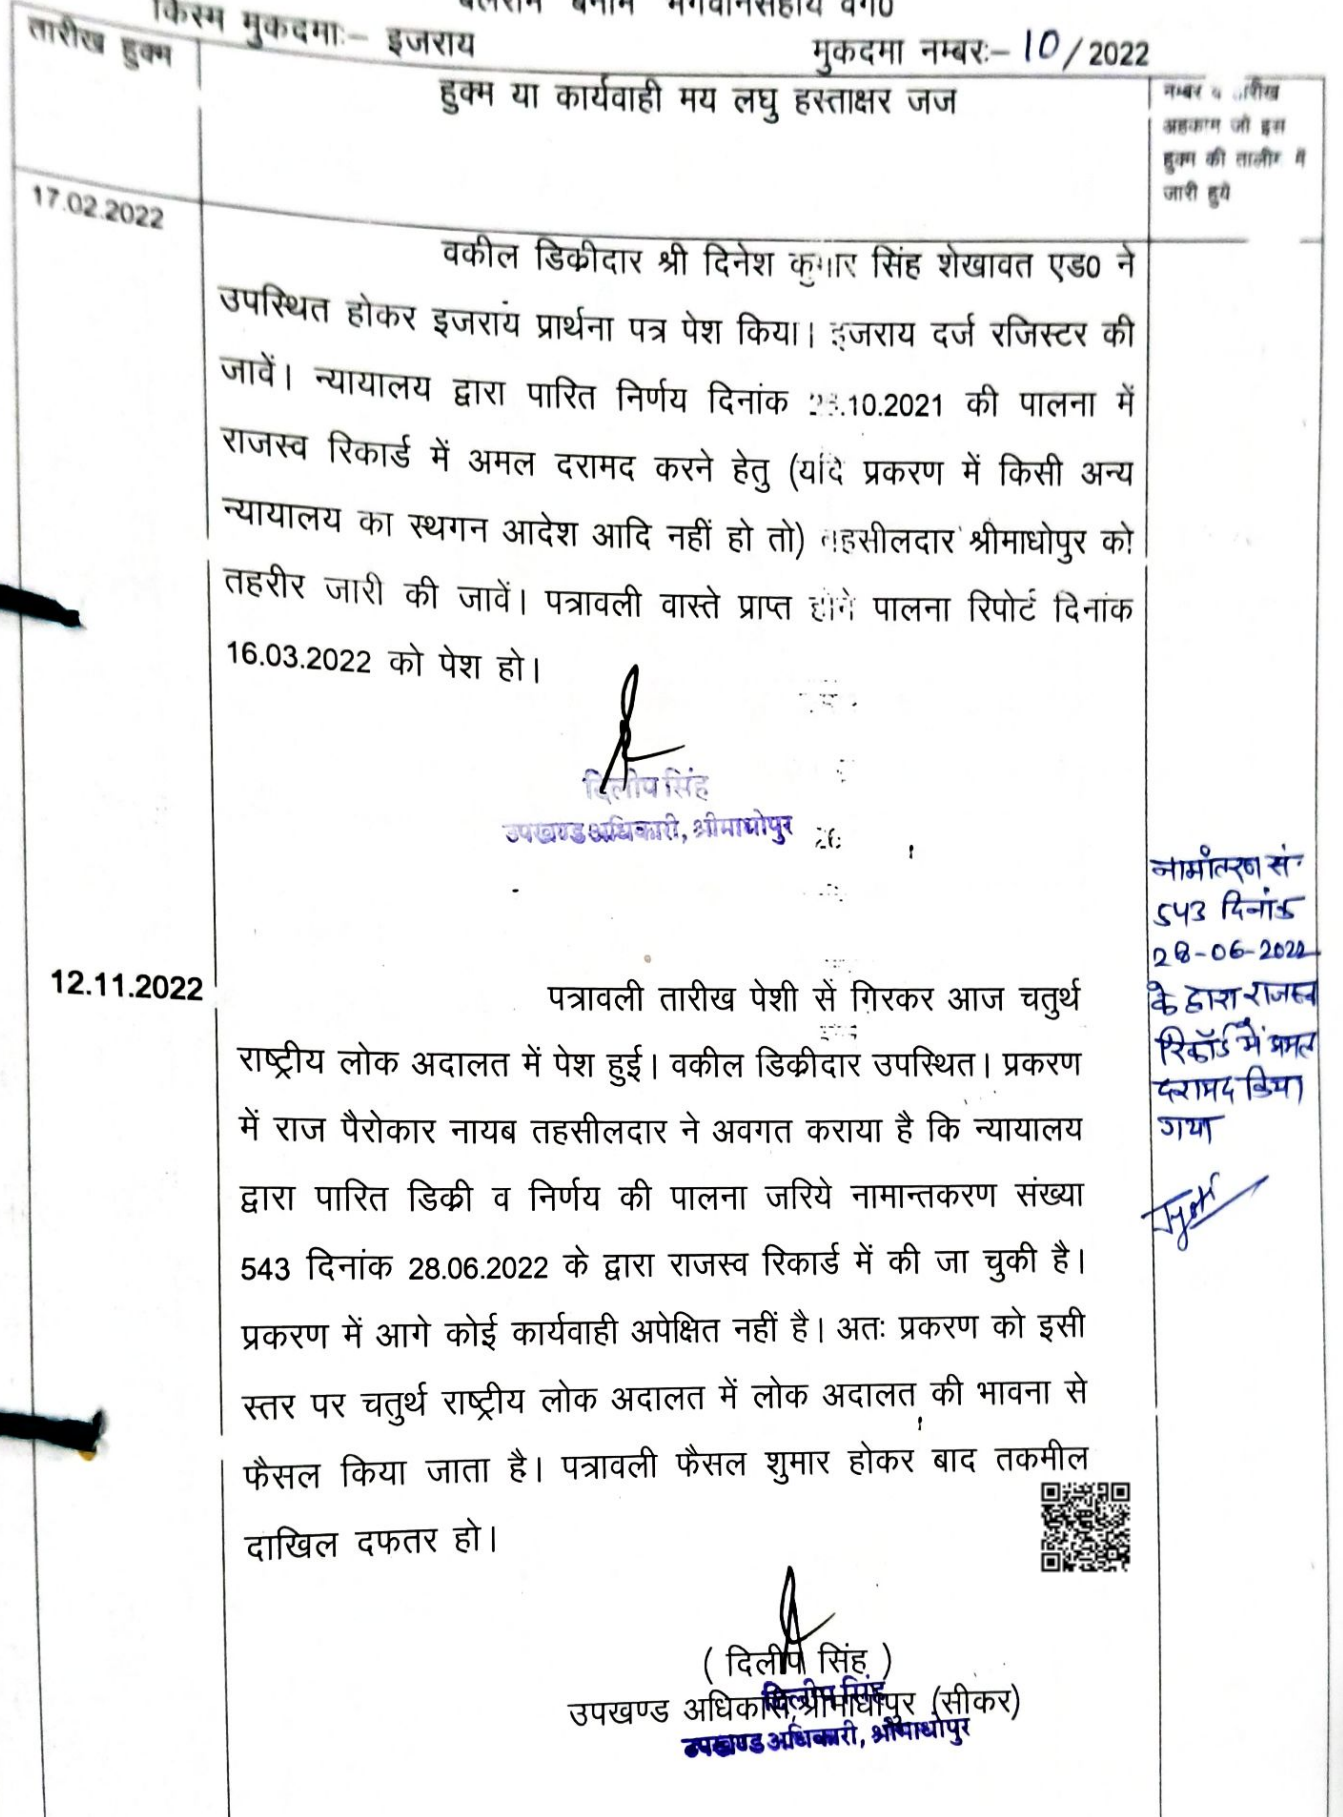 बलराम बनाम भगवानसहाय वग0
किस्म मुकदमाः– इजराय
मुकदमा नम्बरः– 10/2022
तारीख हुक्म
हुक्म या कार्यवाही मय लघु हस्ताक्षर जज
नम्बर व तारीख
अहकाम जो इस
हुक्म की तालीम में
जारी हुये
17.02.2022
वकील डिकीदार श्री दिनेश कुमार सिंह शेखावत एड0 ने
उपस्थित होकर इजराय प्रार्थना पत्र पेश किया। इजराय दर्ज रजिस्टर की
जावें। न्यायालय द्वारा पारित निर्णय दिनांक .10.2021 की पालना में
राजस्व रिकार्ड में अमल दरामद करने हेतु (यदि प्रकरण में किसी अन्य
न्यायालय का स्थगन आदेश आदि नहीं हो तो) तहसीलदार श्रीमाधोपुर को
तहरीर जारी की जावें। पत्रावली वास्ते प्राप्त होने पालना रिपोर्ट दिनांक
16.03.2022 को पेश हो।
दिलीप सिंह
उपखण्ड अधिकारी, श्रीमाधोपुर
नामांतरण सं.
543 दिनांक
28-06-2022
के द्वारा राजस्व
रिकॉर्ड में अमल
दरामद किया
गया
12.11.2022
पत्रावली तारीख पेशी से गिरकर आज चतुर्थ
राष्ट्रीय लोक अदालत में पेश हुई। वकील डिकीदार उपस्थित। प्रकरण
में राज पैरोकार नायब तहसीलदार ने अवगत कराया है कि न्यायालय
द्वारा पारित डिकी व निर्णय की पालना जरिये नामान्तकरण संख्या
543 दिनांक 28.06.2022 के द्वारा राजस्व रिकार्ड में की जा चुकी है।
प्रकरण में आगे कोई कार्यवाही अपेक्षित नहीं है। अतः प्रकरण को इसी
स्तर पर चतुर्थ राष्ट्रीय लोक अदालत में लोक अदालत की भावना से
फैसल किया जाता है। पत्रावली फैसल शुमार होकर बाद तकमील
दाखिल दफतर हो।
( दिलीप सिंह )
उपखण्ड अधिकारी, श्रीमाधोपुर (सीकर)
दिलीप सिंह
उपखण्ड अधिकारी, श्रीमाधोपुर